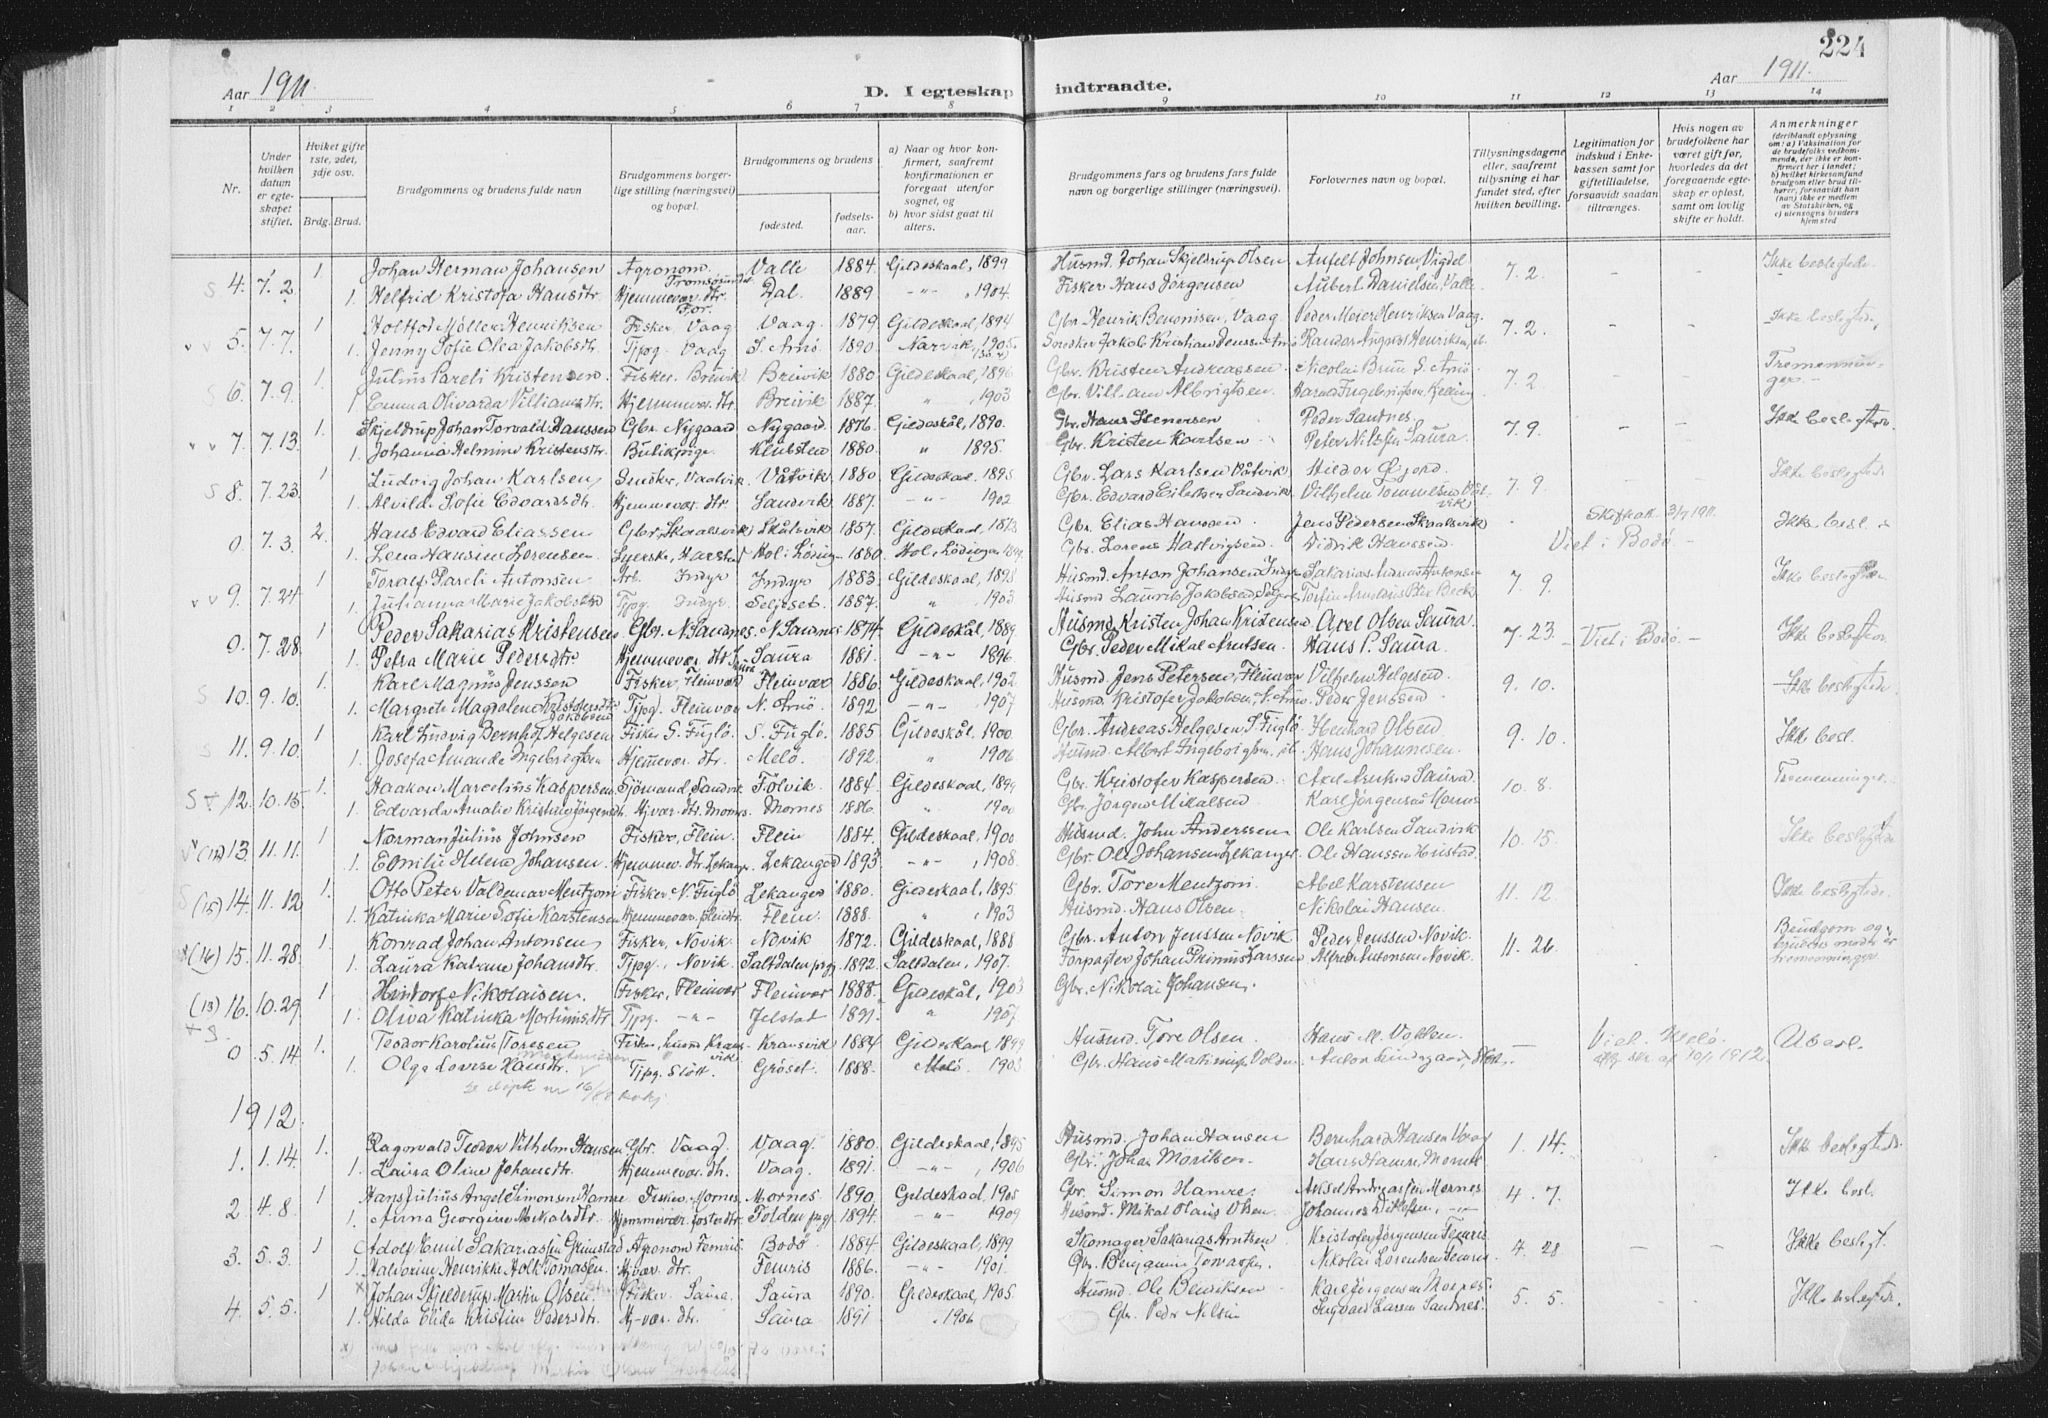 224
Aar 1911. D. I egteskap indtraadte. Aar 1911.
1 2 3 4 5 6 7 8 9 10 11 12 13 14
Nr.
Under hvilken datum er egteskapet stiftet.
Hviket gifte 1ste, 2det, 3dje osv.
Brdg. Brud.
Brudgommens og brudens fulde navn
Brudgommens borgerlige stilling (næringsvei) og bopæl.
Brudgommens og brudens
fødested.
fødselsaar.
a) Naar og hvor konfirmert, saafremt konfirmationen er foregaat utenfor sognet, og
b) hvor sidst gaat til alters.
Brudgommens fars og brudens fars fulde navn og borgerlige stillinger (næringsvei).
Forlovernes navn og bopæl.
Tillysningsdagene eller, saafremt tillysning ei har fundet sted, efter hvilken bevilling.
Legitimation for indskud i Enkekassen samt for giftetilladelse, forsaavidt saadan tiltrænges.
Hvis nogen av brudefolkene har været gift før, hvorledes da det foregaaende egteskap er opløst, samt om lovlig skifte er holdt.
Anmerkninger
(deriblandt oplysning om: a) Vaksination for de brudefolks vedkommende, der ikke er konfirmert her i landet; b) hvilket kirkesamfund brudgom eller brud tilhører, forsaavidt han (hun) ikke er medlem av Statskirken, og c) utensogns bruders hjemsted
S 4. 7.2 1 Johan Herman Johansen Agronom Tromsøsundet Valle 1884. Gildeskaal, 1899 Husmd. Johan Skjeldrup Olsen Anfelt Johnsen Vigdel 7.2. - - Ikke beslegtede
1. Helfrid Kristofa Hansdtr Hjemmevær. dtr. Dal. 1889 -"- , 1904. Fisker Hans Jørgensen Aubert Danielsen, Valle
v v 5. 7.7. 1 Holtfod Møller Henriksen Fisker, Vaag Vaag. 1879. Gildeskaal, 1894 Gbr. Henrik Beronisen, Vaag Peder Meier Henriksen Vaag. 7.2. - - Ikke beslegtede,
1. Jenny Sofie Olea Jakobsdtr Tjpg. Vaag S. Arnø 1890. Narvik, 1905.
S 6. 7.9. 1. Julius Pareli Kristensen Fisker. Breivik Breivik 1880. Gildeskaal, 1896 Gbr. Kristen Andreassen Nicolai Bruu S. Arnø 7.2 - - Tremenninger. -
1 Emma Olivarda Villiamsdtr. Hjemmevær. dtr. Breivik 1887 " , 1903 Gbr. Villiam Albrigtsen
v v 7. 7.13. 1. Skjeldrup Johan Torvald Hanssen Gbr. Nygaard Nygaard 1876. Gildeskål, 1890. Gbr. Hans Stenersen Peder Sandnes. 7.9. - - Ikke beslegtede.
1. Johanna Helmine Kristensdtr. Butikpige. 1880. " 1895. Gbr. Kristen Karlsen Peter Nilssen Saura.
S 8. 7.23. 1 Ludvig Johan Karlsen 1880 Gildeskaal. 1895 Gbr. Lars Karlsen Våtvik Hildor Gjord. 7.9. - - Ikke beslegtede
1. Alvilda Sofie Edvardsdtr. Hjemmevær. dtr. Sandvik 1887. -"- 1902 Gbr. Edvard Eilertsen Sandvik.
0. 7.3. 2. Hans Edvard Eliassen Gbr. Skaalsvik Skålsvik 1857. Gildeskaal, 1873 Gbr. Elias Hansen. Jens Pedersen Skaalsvik Ikke besl.
1. Lena Hansine Lorensen. Syerske, Harstad Hol i Lödingen 1880. Gbr. Lorens Hartvigsen. Didrik Hanssen. Viet i Bodø. -
v v 9. 7.24 1 Toralf Pareli Antonsen Arb. Indyr Indyr 1883. Gildeskaal, 1898 Husmd. Anton Johansen Indyr Sakarias Andreas Antonsen 7.9. Ikke beslegtede.
1. Julianna Marie Jakobsdtr Tjpg. Indyr. Seljeset. 1887. " , 1903.
0. 7.28. 1 Peder Sakarias Kristensen Gbr. N. Sandnes. N. Sandnes 1874. Gildeskål, 1889. Husmd. Kristen Johan Kristensen Axel Olsen Saura. 7.23. - Viet i Bodø. - Ikke beslegtede.
1. Petra Marie Pedersdtr Hjemmevær. dtr. Saura Saura 1881. -"- 1896. Gbr. Peder Mikal Arntsen. Hans P. Saura.
S 10. 9.10. 1. Karl Magnus Jenssen Fisker, Fleinvær Fleinvær 1886. Gildeskaal, 1902. Husmd. Jens Petersen, Fleinvær Vilhelm Helgesen. 9.10. Ikke beslegtede
1. Margrete Magdalena Kristofersdtr Jakobsen Tjpg. Fleinvær N. Arnø 1892 -"- 1907 Husmd. Kristofer Jakobsen, N. Arnø Peder Jenssen.
S 11. 9.10. 1 Karl Ludvig Bernhof Helgesen Fisker S. Fuglø. S. Fuglø. 1885 Gildeskål. 1900. Gbr. Andreas Helgesen S. Fuglø. 9.10. Ikke besl.
1. Josefa Amande Ingebrigtsen Hjemmevær. dtr. Melö. 1892. " 1906. Husmd. Albert Ingebrigtsen. Hans Johannesen.
S + 12. 10.15. 1. Haakon Marcelius Kaspersen Sjömand, Sandvik Følvik. 1884. Gildeskaal, 1899 Gbr. Kristofer Kaspersen. Axel Arntsen Saura. 10.8. Tremenninger.
1. Edvarda Amalie Kristine Jørgensdtr. Hjvær. dtr. Mornes. Mornes 1886. " 1900 Gbr. Jørgen Mikalsen Karl Jørgensen Mornes
v (12) 13. 11.11. 1 Norman Julius Johnsen Fisker, Flein. Flein 1884. Gildeskaal, 1900. Husmd. John Anderssen Ole Karlsen Sandvik 10.15. Ikke beslegtede
1. Emilie Helena Johansen. Hjemmev. dtr. Lekanger Lekanger 1893 -"- , 1908. Gbr. Ole Johansen Lekanger. Ole Hanssen
S (15) 14. 11.12 1. Otto Peter Valdemar Mentzoni Fisker N. Fuglø Lekanger 1880. Gildeskaal, 1895 Gbr. Tore Mentzoni Abel Karstensen 11.12. Ikke beslegtede.
1. Katinka Marie Sofie Karstensen Hjemmevær. pleiedtr. Flein. 1888. " , 1903 Husmd. Hans Olsen. Nikolai Hansen.
(16) 15. 11.28. 1. Konrad Johan Antonsen Fisker, Novik. Novik 1872. Gildeskaal, 1888 Gbr. Anton Jenssen Novik Peder Jenssen Novik. 11.26. Brudgom og brudens mor er tremenninger.
1. Laura Katrine Johansdtr. Tjpg., Novik. Saltdalen prgj 1892. Saltdalen, 1907. Forpagter Johan Primus Larssen Alfred Antonsen Novik.
(13) 16. 10.29 1 Hintorf Nikolaisen. Fisker, Fleinvær Fleinvær 1888. Gildeskål, 1903 Gbr. Nikolai Johansen.
+ S. 1. Oliva Katinka Mortinusdtr. Tjpg. -"- Jelstad 1891. " 1907.
0. 5.14. 1. Teodor Karolius Toresen Fisker, Kransvik 1884 Gildeskaal 1899 Husmd. Tore Olsen. Hans M. Volden. Viet. Melö. Ubesl.
1. Olga Lovise Hansdtr. Tjpg. Slött. Gröset. 1888. Melö. 1903 Gbr. Hans Martinus Volden
1912.
1. 1.14. 1. Ragnvald Teodor Vilhelm Hansen Gbr. Vaag. Vaag. 1880. Gildeskaal, 1895 Husmd. Johan Hansen Bernhard Hansen Vaag 1.14. Ikke beslegtede.
1. Laura Oline Johansdtr. Hjemmevær. dtr. Vaag. 1891. -"- , 1906 Gbr. Johan Moritsen.
2. 4.8. 1 Hans Julius Angel Simonsen Hamre Fisker. Mornes. Mornes. 1890. Gildeskaal, 1905 Gbr. Simon Hamre. Aksel Andreassen Mornes. 4.7. Ikke besl.
1. Anna Georgine Mikalsdtr. Hjemmevær. fosterdtr. Folden prgj 1894. -"- 1909 Husmd. Mikal Olaus Olsen. Johannes Ditlefsen, -"-
3. 5.3. 1 Adolf Emil Sakariassen Grimstad Agronom Femris. Bodø 1884. Gildeskaal, 1899 Skomager Sakarias Arntsen. Kristofer Jørgensen Femris. 4.28 - - Ikke beslegt.
1. Halvorine Henrikke Holk Tomasen. Hjvær. dtr. Femris 1886. -"- 1901. Gbr. Benjamin Tomassen. Nikolai Lorentsen Femris
4. 5.5. 1 Johan Skjelderup Martin Olsen. Fisker. Saura. Saura 1890. Gildeskaal, 1905 Husmd. Ole Benriksen Karl Jørgensen Mornes. 5.5. - - Ikke beslegtede.
1. Hilda Elida Kristine Pedersdtr. Hj-vær. dtr. Saura 1891 , 1906 Gbr. Peder Nilsen Ingvard Larsen Sandnes.